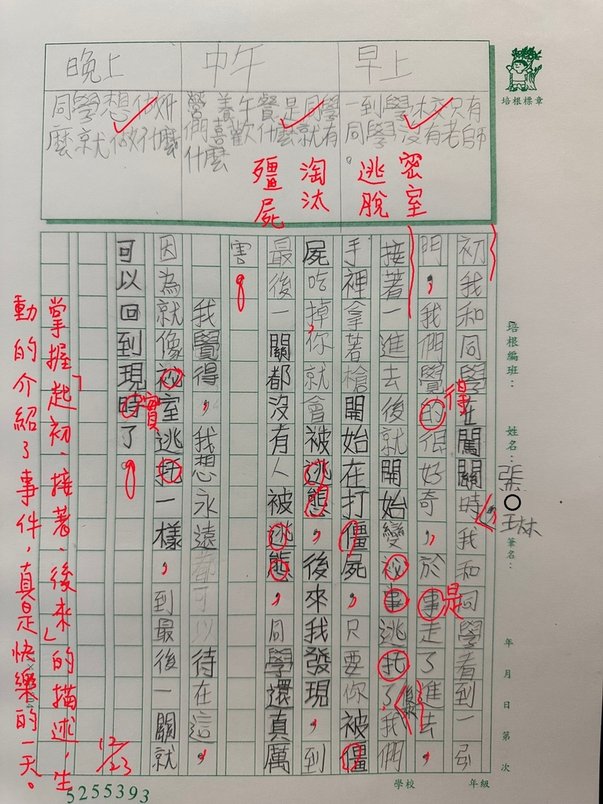 早上
一到學校只有
同學沒有老師
。
中午
營養午餐是同學
們喜歡什麼就有
什麼
晚上
同學想做什
麼就做什麼
密室
逃脫
淘汰
殭屍
培根標章
初我和同學在闖關時我和同學看到一扇
門,我們覺的很好奇,於事走了進去,
得
是
接著一進去後就開始變祕事逃托了我們
後
手裡拿著槍開始在打僵屍,只要你被僵
屍吃掉,你就會被逃態,後來我發現,到
最後一關都沒有人被逃態,同學還真厲
害。
我覺得,我想永遠都可以待在這,
因為就像祕室逃托一樣,到最後一關就
可以回到現時了。
實
掌握「起初、接著、後來」的描述,生
動的介紹了事件,真是快樂的一天。
12/23
培根編班:
姓名:張○
玉林
筆名:
年 月 日 第 次
學校 年級
5255393